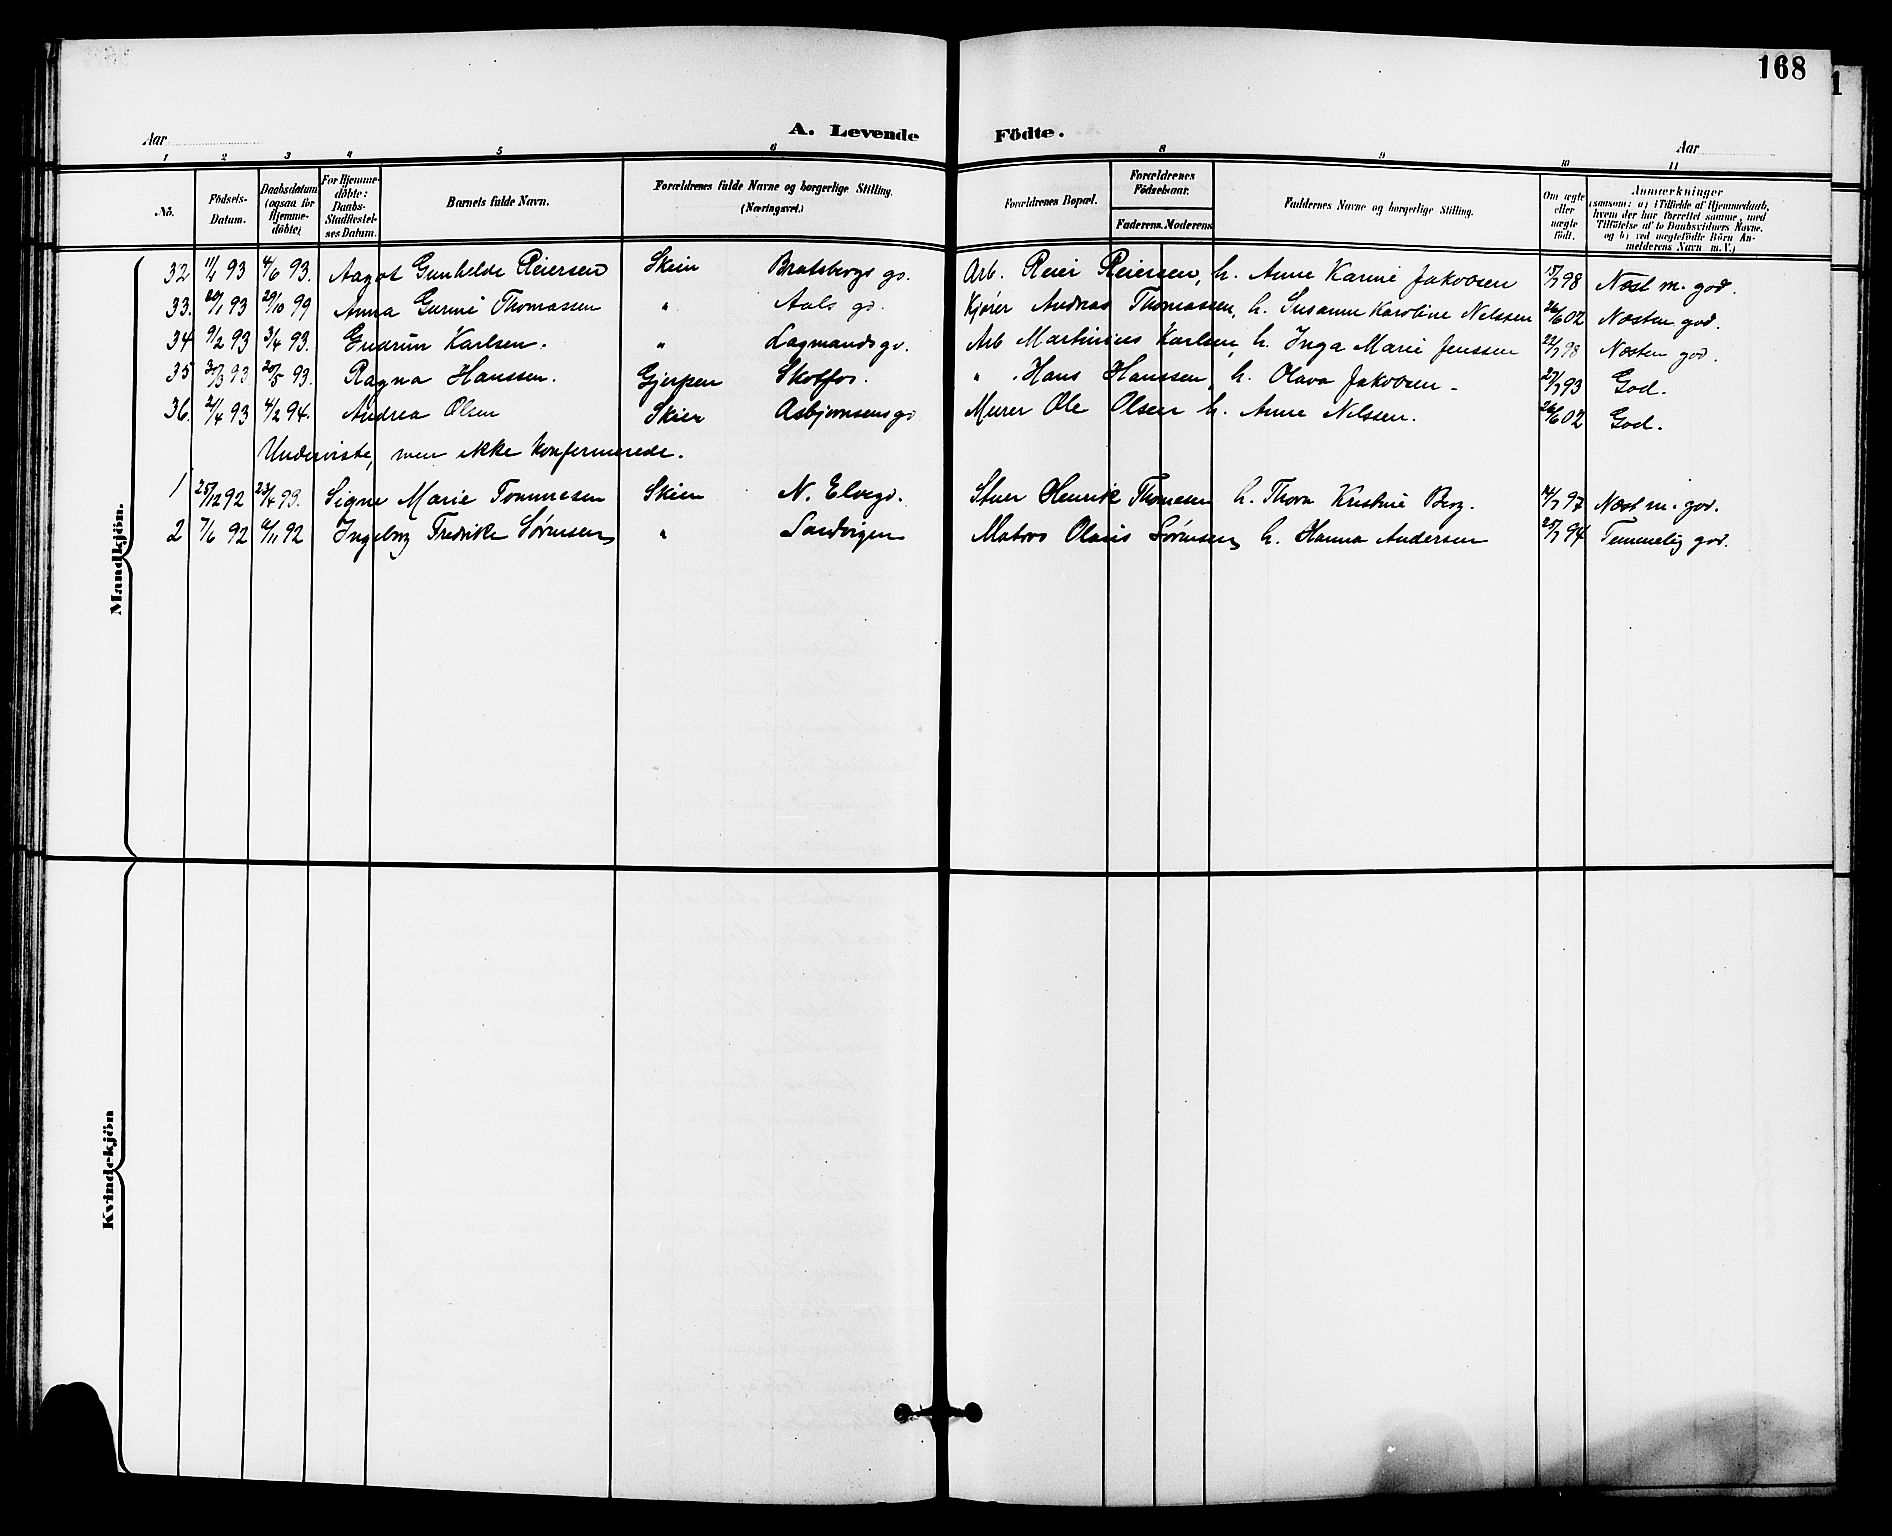 168
Aar
A. Levende Födte.
Aar
1 2 3 4 5 6 8 9 10 11
Nö.
Födsels-Datum.
Daabsdatum (ogsaa for Hjemme-döbte)
For Hjemme-döbte: Daabs-Stadfæstel-ses Datum.
Barnets fulde Navn.
Forældrenes fulde Navne og borgerlige Stilling. (Næringsvei.)
Forældrenes Bopæl.
Forældrenes Födselsaar.
Faderens. Moderens
Faddernes Navne og borgerlige Stilling.
Om ægte eller uægte födt.
Anmærkninger
(saasom: a) i Tilfælde af Hjemmedaab, hvem der har forrettet samme, med Tilföielse af to Daabsvidners Navne, og b) ved uægtefödte Börn An-melderens Navn m. V.)
32 11/1 93 4/6 93. Aagot Gunhilde Reiersen Skien Bratsbergs gs. Arb. Reier Reiersen, h. Anne Karine Jakobsen 15/7 98 Næst m. god.
33. 20/1 93 29/10 99 Anna Gurine Thomassen " Aals gd. Kjører Andreas Thomassen, h. Susanne Karoline Nilssen 26/6 02 Næsten god.
34 9/2 93 3/4 93. Gudrun Karlsen. " Lagmandsgd. Arb Martinius Karlsen, h. Inga Marie Jenssen 22/7 98 Næsten god.
35 30/3 93 20/5 93. Ragna Hanssen. Gjerpen Skotfos. " Hans Hanssen, h. Olava Jakobsen - 27/7 93 God.
36. 2/4 93 4/2 94. Andrea Olsen Skien Asbjørnsensgd Murer Ole Olsen h. Anne Nilssen. 26/6 02 God.
Underviste, men ikke konfirmerede.
1 25/12 92 23/4 93. Signe Marie Tommesen Skien N. Elvegd. Stuer Henrik Thomesen h. Thora Kristine Berg. 4/7 97 Næst m. god.
2 7/6 92 6/11 92 Ingeborg Fredrikke Sørensen " Sandvigen Matros Olaus Sørensen, h. Hanna Andersen 25/7 94 Temmelig god.
Mandkjön.
Kvindekjön